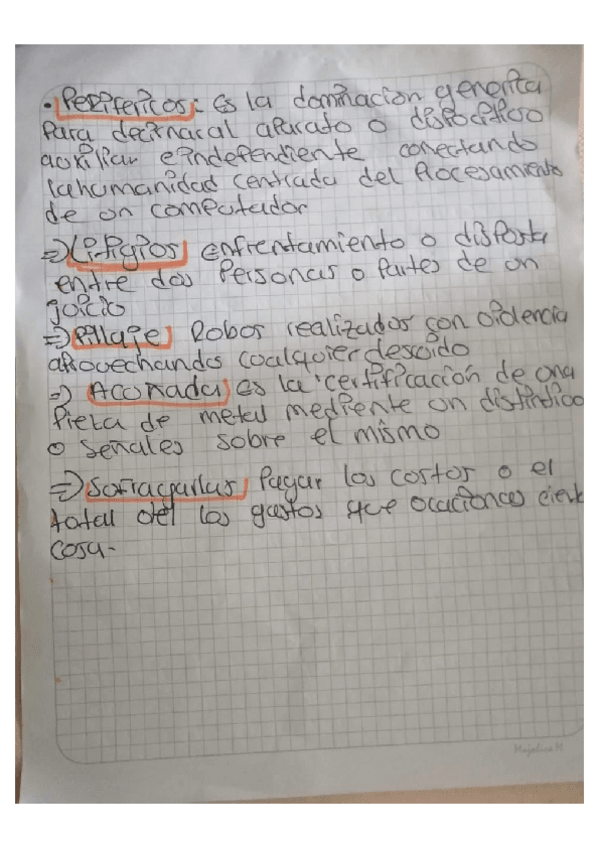 • Perifericos: es la dominacion generita
para decinacal aparato o dispocitibo
auxiliar e independiente conectando
la humanidad centrada del Procesamiento
de un computador
=> Litigios enfrentamiento o disposta
entre dos Personas o Partes de un
juicio
=> Pillaje Robos realizados con violencia
aprovechando cualquier descuido
=> Acuñada es la certificación de una
Pieza de metal mediente un distintico
o señales sobre el mismo
=> sufragarlas Pagar los costos o el
total del los gastos que ocaciones cierta
cosa-
Majalica M